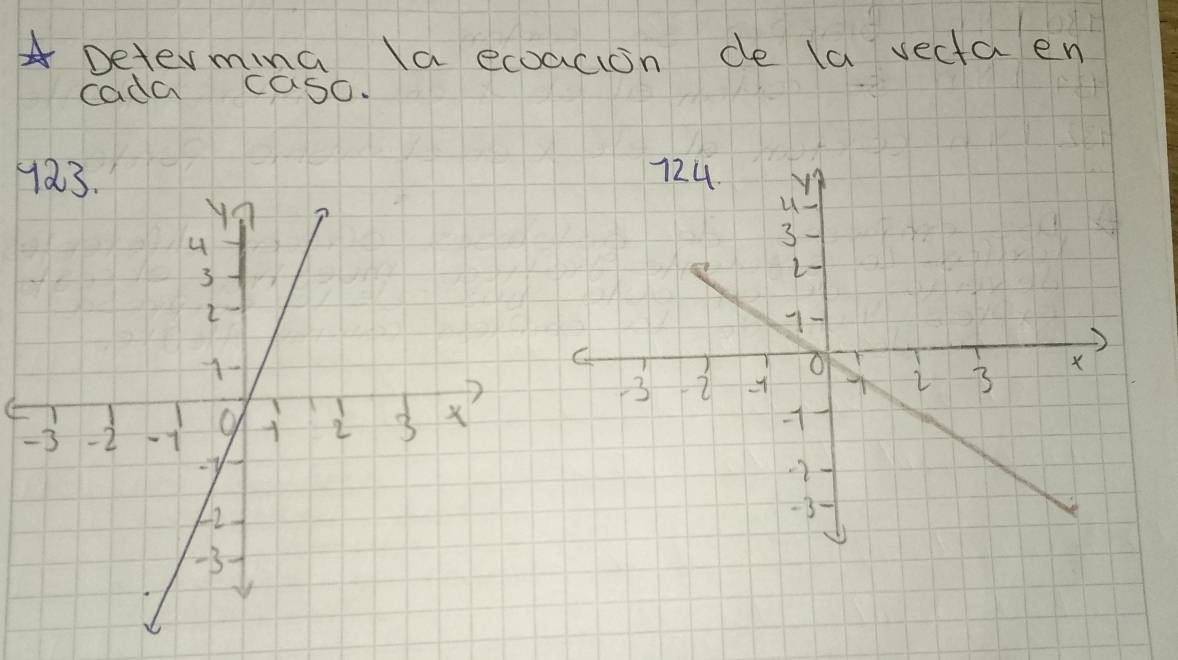 ☆ Determina la ecuación de la recta en
cada caso.
123.
124.
Y
4
3
2
1
-3 -2 -1 0 1 2 3 x
-1
-2
-3
Y
4
3
2
1
-3 -2 -1 0 1 2 3 x
-1
-2
-3